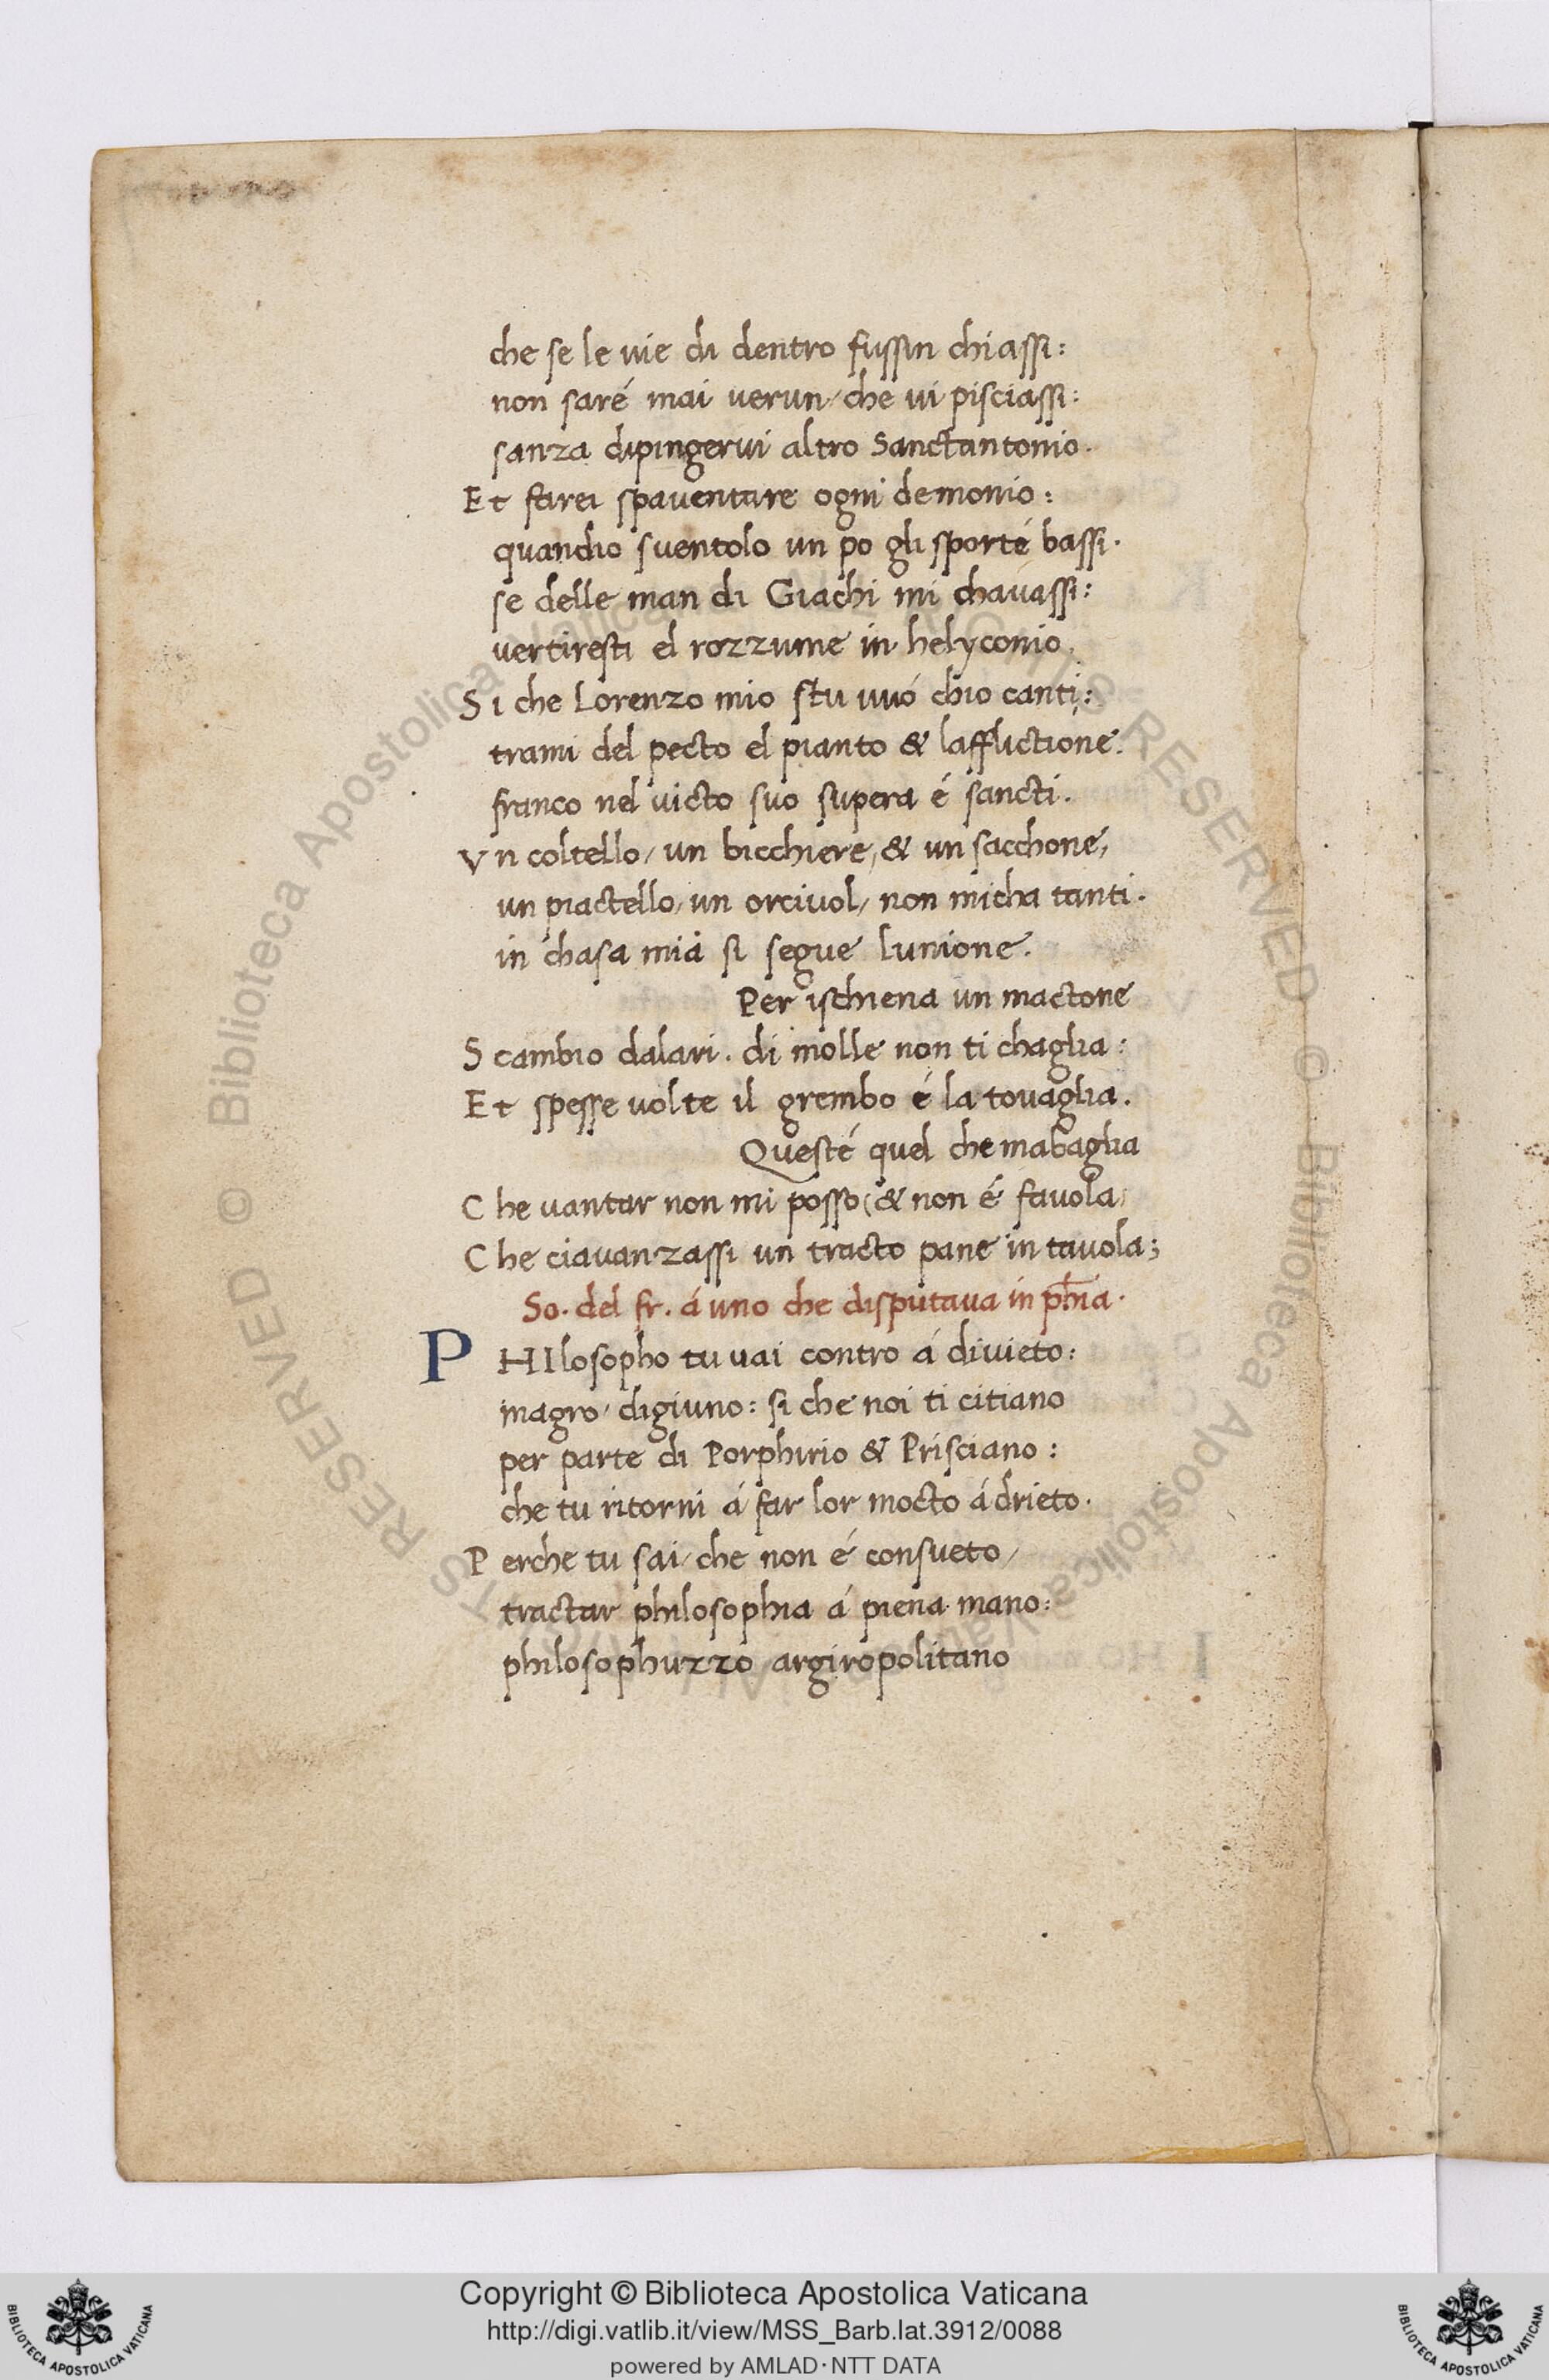 che se le uie di dentro fussin chiassi:
non saré mai uerun/che ui pisciassi:
sanza dipingerui altro Sanctantonio.
Et farei spauentare ogni demonio:
quandio suentolo un po gli sporté bassi.
se delle man di Giachi mi chauassi:
uertiresti el rozzume in helyconio.
Si che Lorenzo mio stu uuó chio canti:
trami del pecto el pianto & lafflictione.
franco nel uicto suo supera é sancti.
Vn coltello/ un bicchiere,& un sacchone,
un piactello/un orciuol/ non micha tanti.
in chasa mia si segue lunione.
Per ischiena un mactone
Scambio dalari. di molle non ti chaglia:
Et spesse uolte il grembo é la touaglia.
Questé quel che mabaglia
Che uantar non mi posso(& non é fauola/
Che ciauanzassi un tracto pane in tauola;
So. del fr. á uno che disputaua in ph̄ia.
PHIlosopho tu uai contro á diuieto:
magro/ digiuno: si che noi ti citiano
per parte di Porphirio & Prisciano:
che tu ritorni á far lor mocto á drieto.
Perche tu sai/che non é consueto/
tractar philosophia á piena mano:
philosophuzzo argiropolitano
Copyright © Biblioteca Apostolica Vaticana
http://digi.vatlib.it/view/MSS_Barb.lat.3912/0088
powered by AMLAD·NTT DATA